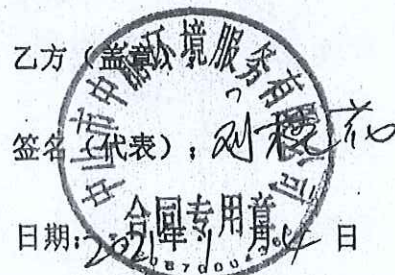 乙方（盖章）
签名（代表）：刘
日期：2021年1月4日
中山市中 环境服务有限公司
合同专用章